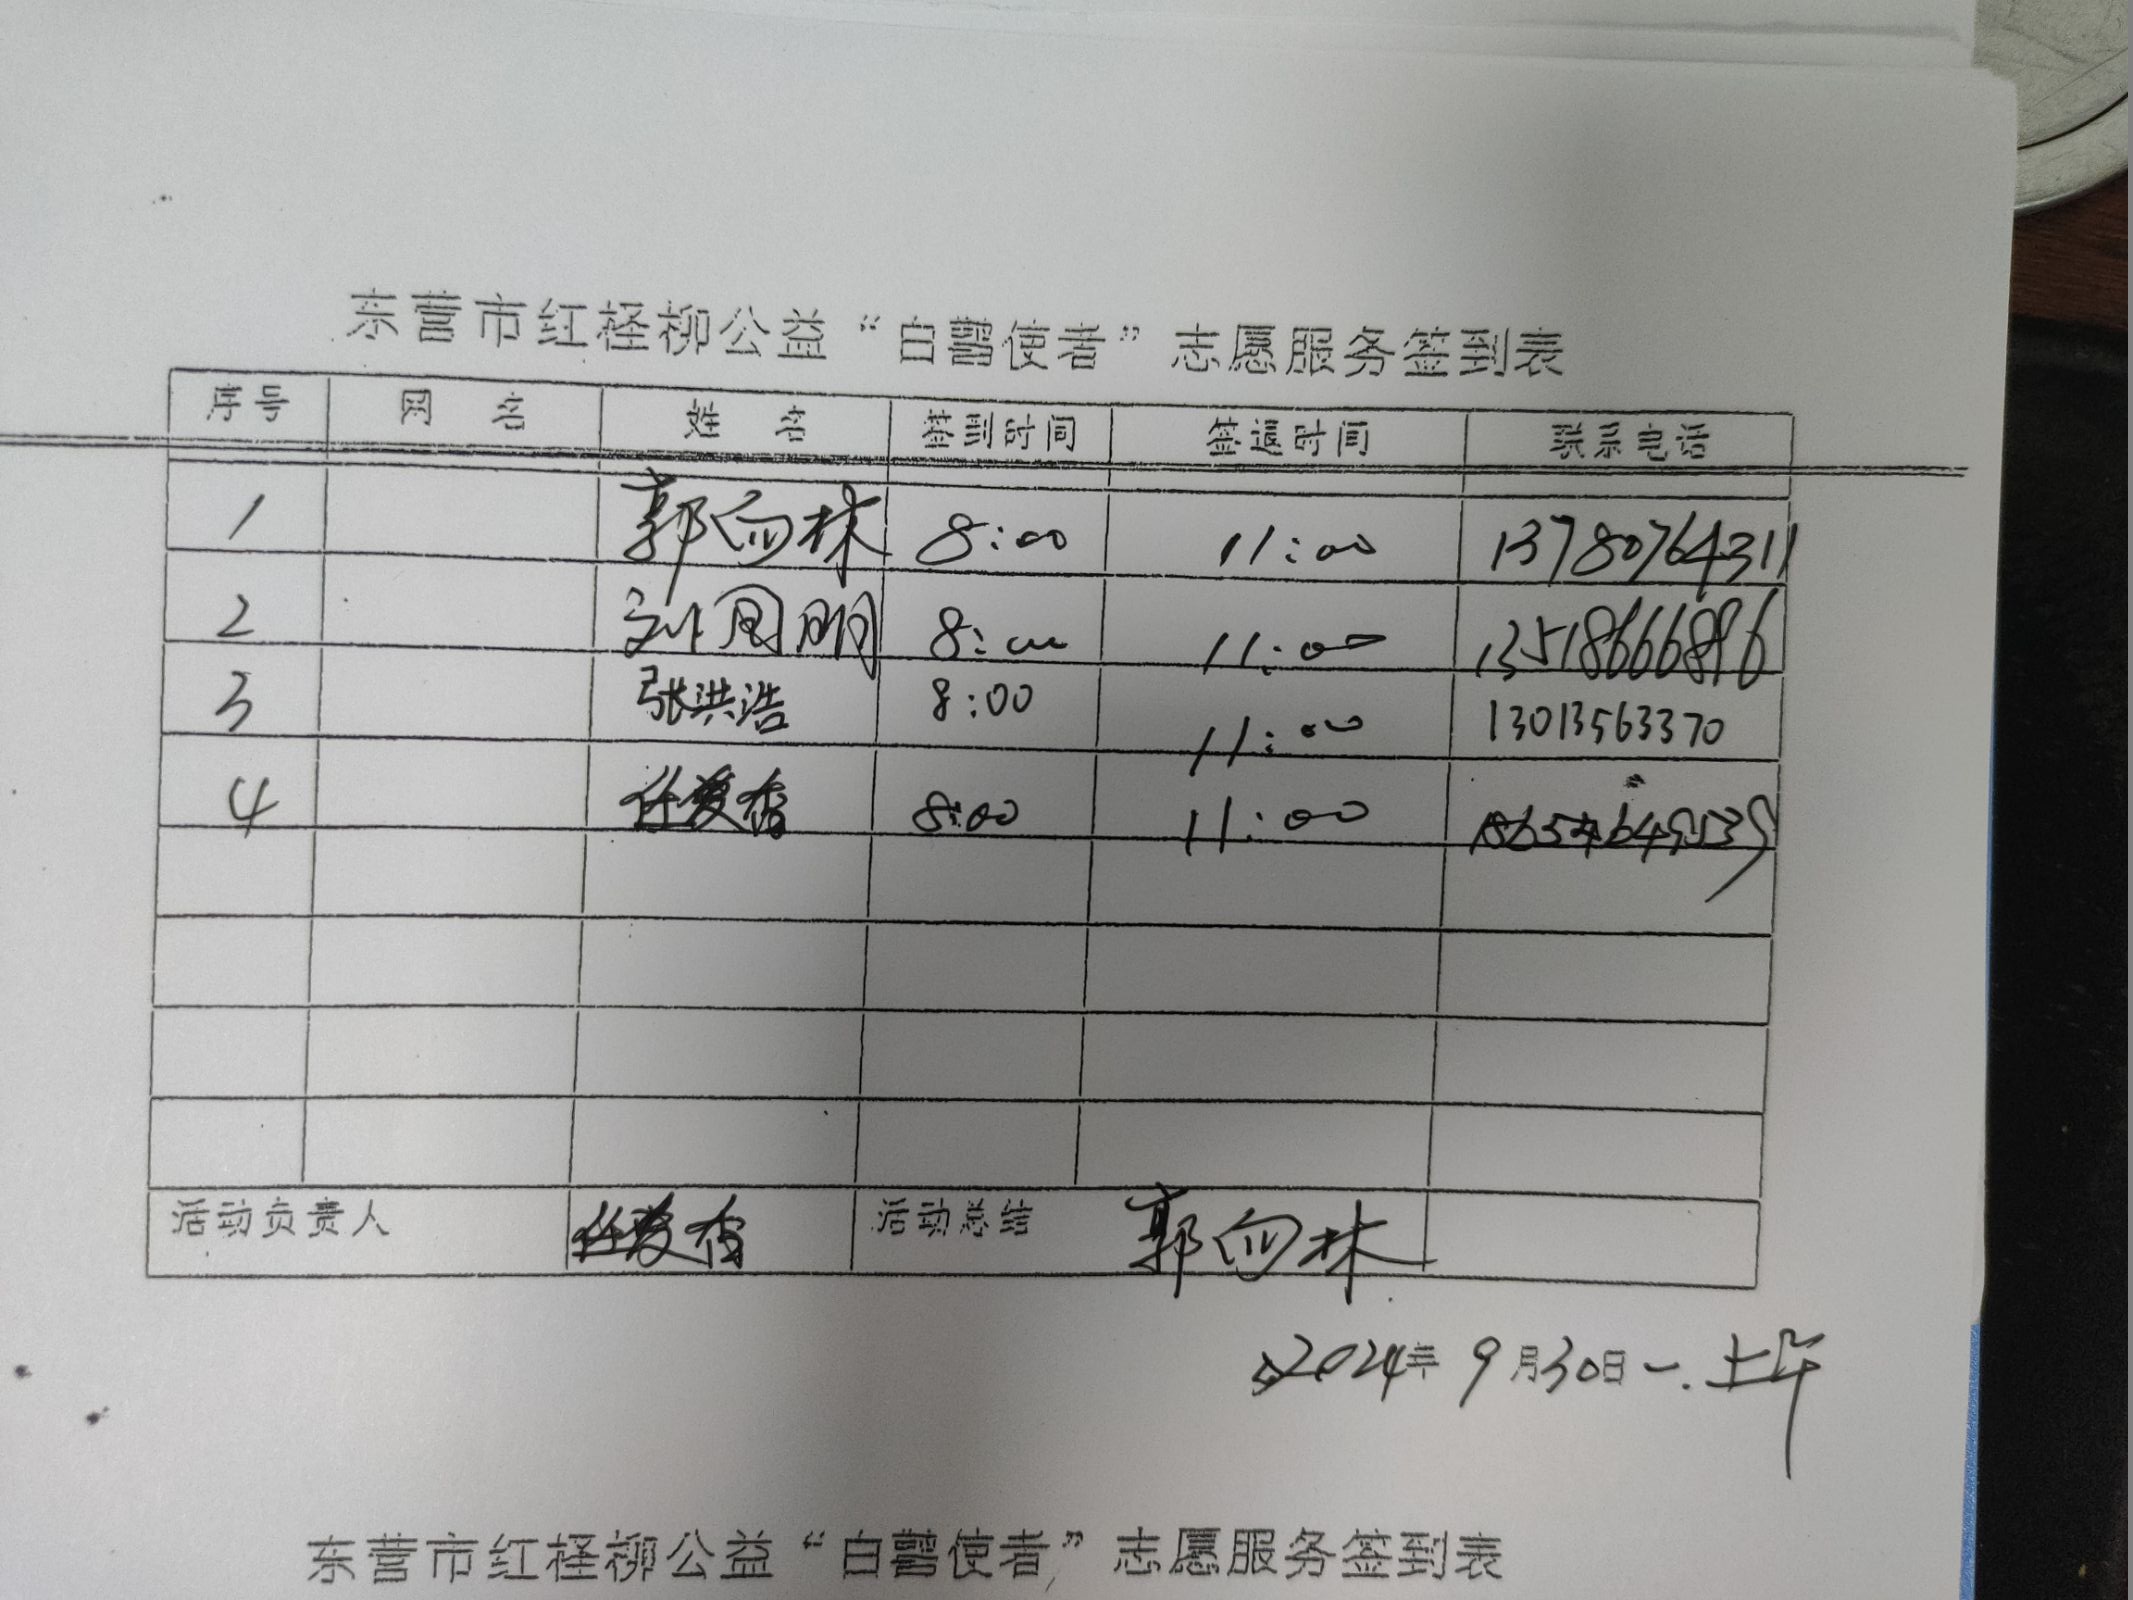 东营市红柽柳公益“白鹭使者”志愿服务签到表
序号 网名 姓名 签到时间 签退时间 联系电话
1 郭向林 8:00 11:00 13780764311
2 刘国明 8:00 11:00 13518666896
3 张洪浩 8:00 11:00 13013563370
4 8:00 11:00
活动负责人 活动总结 郭向林
2024年9月30日一.上午
东营市红柽柳公益“白鹭使者”志愿服务签到表